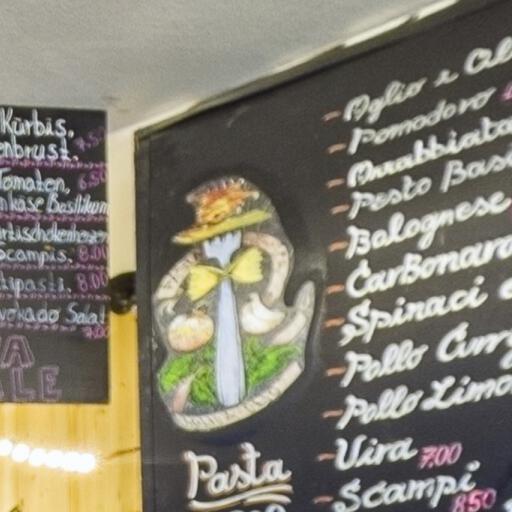 Kürbis,
enbrust. 7.50
Tomaten, 6.50
nkäse Basilikum
rtischokenherzen
Scampis. 8.00
tipasti. 8.00
vokado Salat
7.00
A
ALE
- Aglio e Ol
- Pomodoro
- Arrabbiata
- Pesto Basi
- Bolognese
- Carbonara
- Spinaci
- Pollo Curry
- Pollo Limo
- Vira 7.00
- Scampi
8.50
Pasta